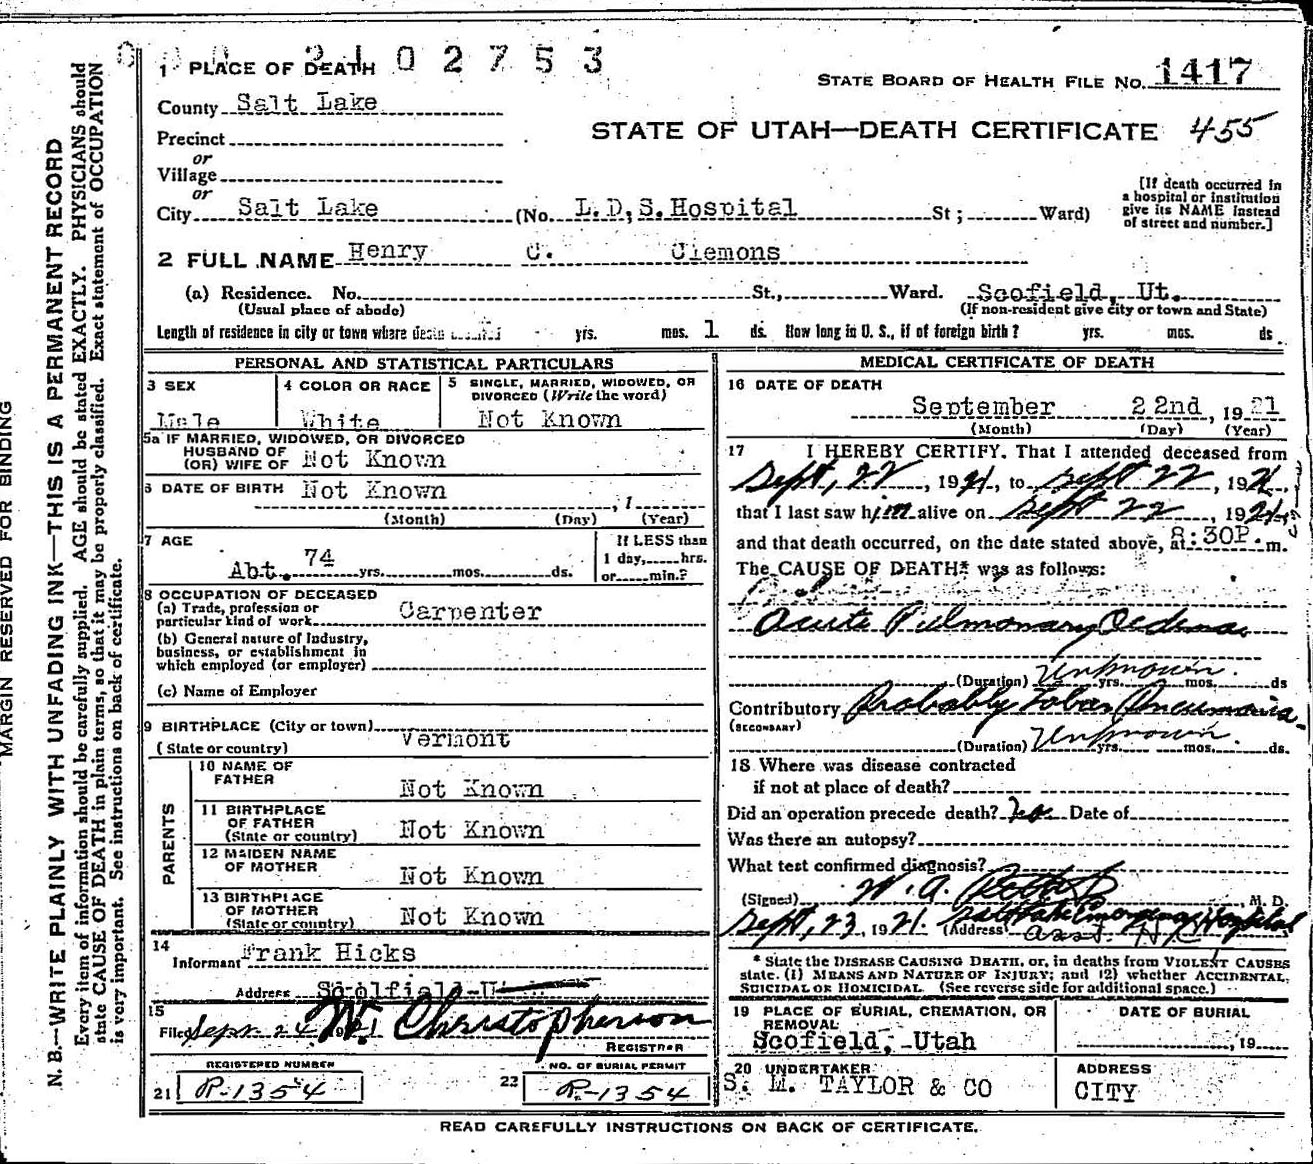 2102753
1 PLACE OF DEATH
STATE BOARD OF HEALTH FILE NO. 1417
County Salt Lake
STATE OF UTAH—DEATH CERTIFICATE 455
Precinct
or
Village
or
City Salt Lake (No. L.D.S.Hospital St; Ward)
[If death occurred in
a hospital or institution
give its NAME instead
of street and number.]
2 FULL NAME Henry C. Clemons
(a) Residence. No. St., Ward. Scofield, Ut.
(Usual place of abode) (If non-resident give city or town and State)
Length of residence in city or town where death yrs. mos. 1 ds. How long in U. S., if of foreign birth? yrs. mos. ds.
PERSONAL AND STATISTICAL PARTICULARS
3 SEX
Male
4 COLOR OR RACE
White
5 SINGLE, MARRIED, WIDOWED, OR
DIVORCED (Write the word)
Not Known
5a IF MARRIED, WIDOWED, OR DIVORCED
HUSBAND OF
(OR) WIFE OF Not Known
6 DATE OF BIRTH Not Known , 1
(Month) (Day) (Year)
7 AGE
Abt. 74 yrs. mos. ds.
If LESS than
1 day, hrs.
or min.?
8 OCCUPATION OF DECEASED
(a) Trade, profession or
particular kind of work Carpenter
(b) General nature of Industry,
business, or establishment in
which employed (or employer)
(c) Name of Employer
9 BIRTHPLACE (City or town)
(State or country) Vermont
PARENTS
10 NAME OF
FATHER Not Known
11 BIRTHPLACE
OF FATHER
(State or country) Not Known
12 MAIDEN NAME
OF MOTHER Not Known
13 BIRTHPLACE
OF MOTHER
(State or country) Not Known
14
Informant Frank Hicks
Address Scolfield U
15
Filed Sept. 24 1921 W. Christopherson
REGISTRAR
REGISTERED NUMBER
21 R-1354
NO. OF BURIAL PERMIT
22 R-1354
MEDICAL CERTIFICATE OF DEATH
16 DATE OF DEATH
September 22nd, 1921
(Month) (Day) (Year)
17 I HEREBY CERTIFY. That I attended deceased from
Sept, 22, 1921, to Sept 22, 1921,
that I last saw him alive on Sept 22, 1921,
and that death occurred, on the date stated above, at 8:30P.m.
The CAUSE OF DEATH* was as follows:
Acute Pulmonary Oedema
(Duration) Unknown yrs. mos. ds
Contributory Probably Lobar Pneumonia
(SECONDARY)
(Duration) Unknown yrs. mos. ds.
18 Where was disease contracted
if not at place of death?
Did an operation precede death? No Date of
Was there an autopsy?
What test confirmed diagnosis?
(Signed) W. A. M. D.
Sept, 23, 1921. (Address Salt Lake Emergency Hospital
* State the DISEASE CAUSING DEATH, or, in deaths from VIOLENT CAUSES
state. (1) MEANS AND NATURE OF INJURY; and (2) whether ACCIDENTAL,
SUICIDAL OR HOMICIDAL. (See reverse side for additional space.)
19 PLACE OF BURIAL, CREMATION, OR
REMOVAL
Scofield, Utah
DATE OF BURIAL
, 19
20 UNDERTAKER
S. M. TAYLOR & CO
ADDRESS
CITY
READ CAREFULLY INSTRUCTIONS ON BACK OF CERTIFICATE.
MARGIN RESERVED FOR BINDING
N. B.—WRITE PLAINLY WITH UNFADING INK—THIS IS A PERMANENT RECORD
Every item of information should be carefully supplied. AGE should be stated EXACTLY. PHYSICIANS should
state CAUSE OF DEATH in plain terms, so that it may be properly classified. Exact statement of OCCUPATION
is very important. See instructions on back of certificate.